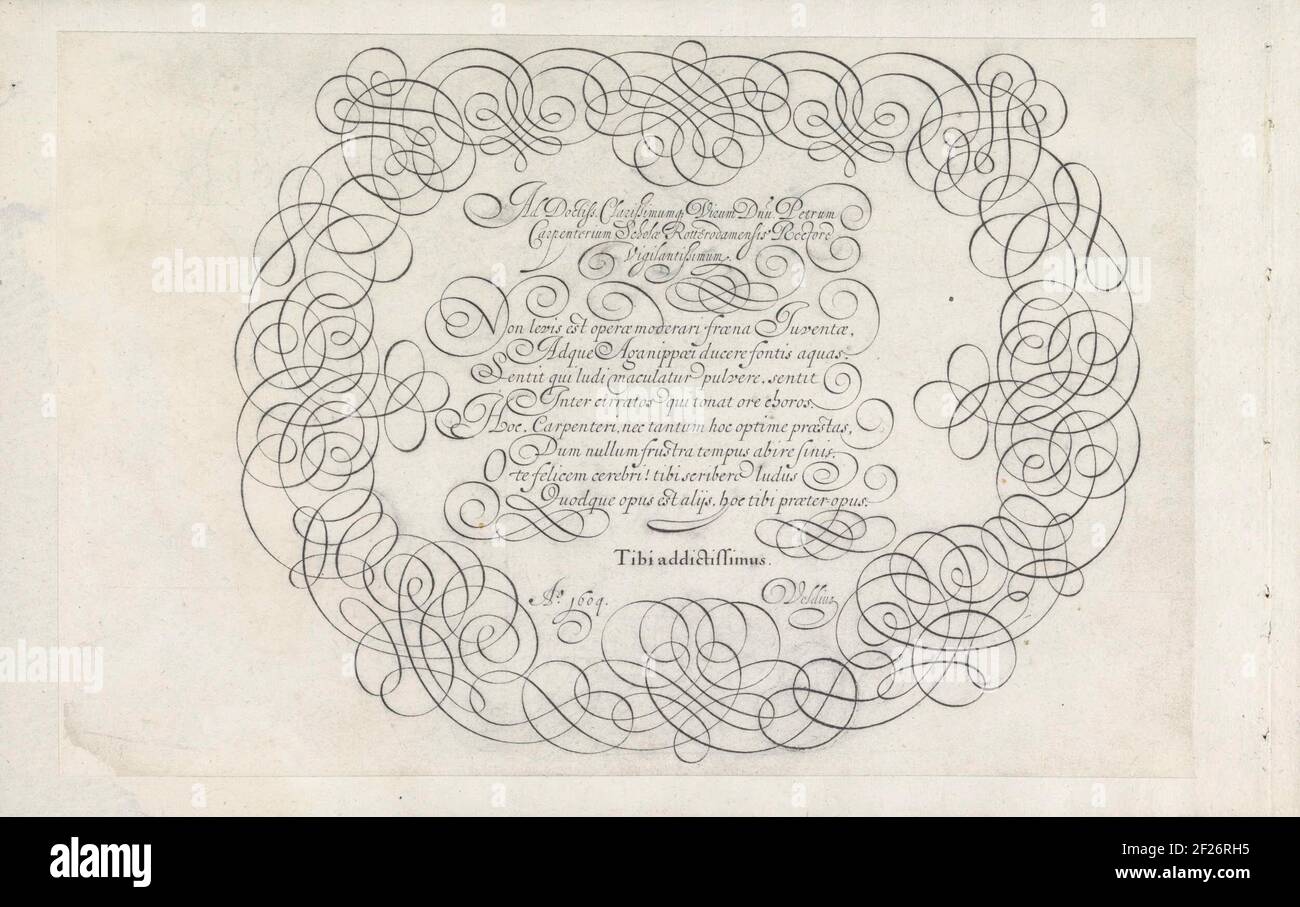 Ad Doctiss. Clarissimumq; Virum Dnū. Petrum
Carpenterium Scholæ Rotterodamensis Rectorē
Vigilantissimum.
Non levis est operæ moderari fræna Iuventæ,
Adque Aganippæi ducere fontis aquas.
Sentit qui ludi maculatur pulvere, sentit
Inter cirratos qui tonat ore choros.
Hoc, Carpenteri, nec tantum hoc optime præstas,
Dum nullum frustra tempus abire sinis.
O te felicem cerebri! tibi scribere ludus
Quodque opus est alijs, hoc tibi præter opus.
Tibi addictissimus.
Aº. 1604. Veldius
alamy
alamy
alamy
Image ID: 2F26RH5
www.alamy.com